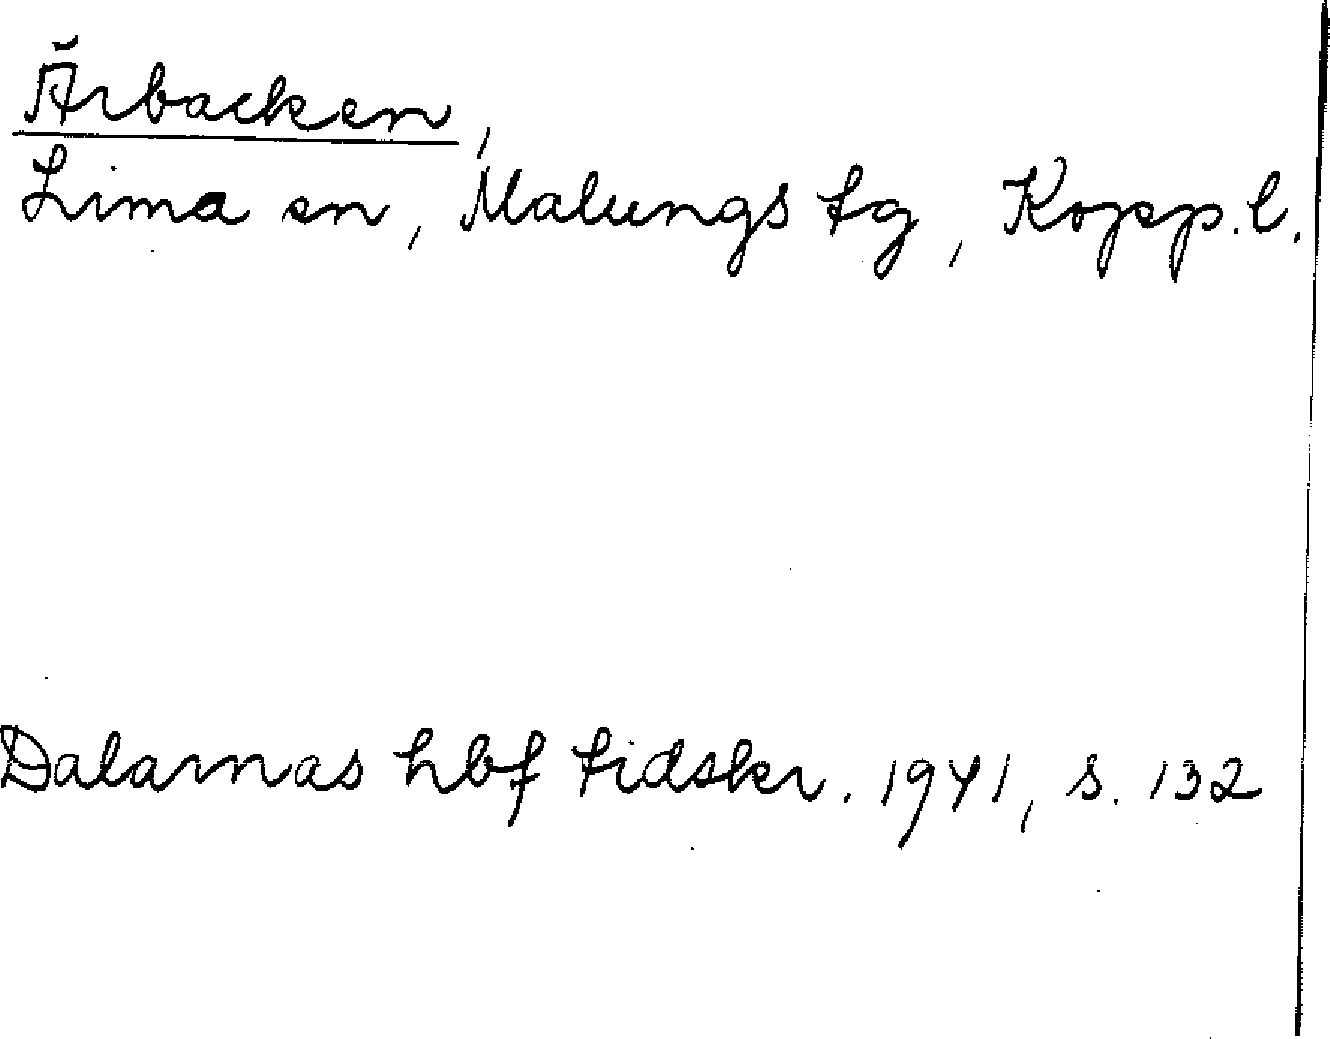 Ärbacken,
Lima sn, Malungs tg, Kopp. l.
Dalarnas hbf tidskr. 1941, s. 132